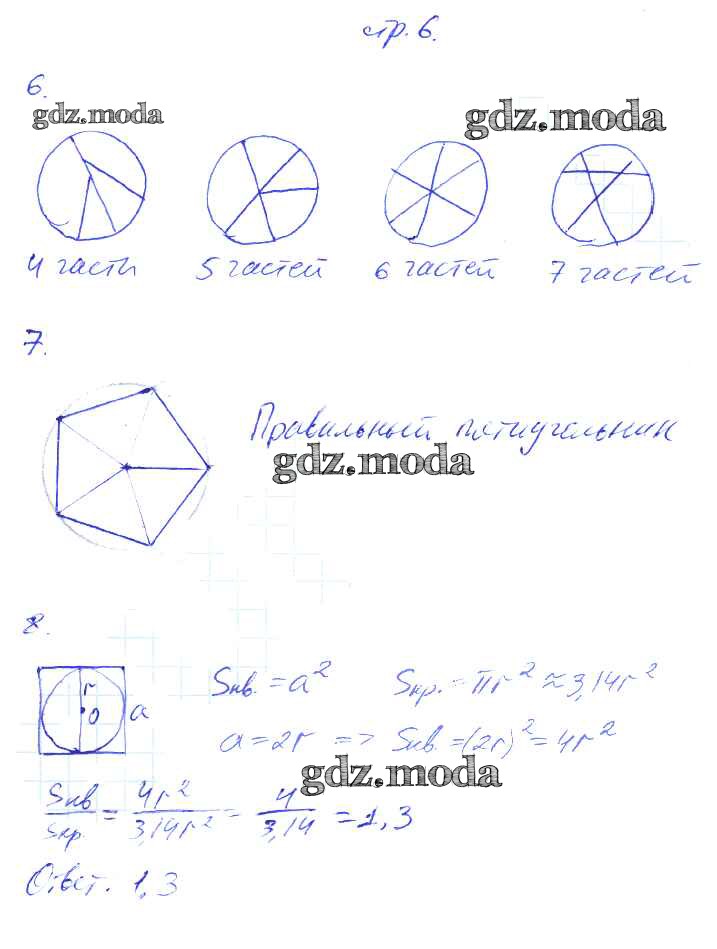 стр. 6.
6.
gdz.moda gdz.moda
4 части 5 частей 6 частей 7 частей
7.
Правильный пятиугольник
gdz.moda
8.
r
o a
Sкв. = a² Sкр. = πr² ≈ 3,14r²
a = 2r => Sкв. = (2r)² = 4r²
gdz.moda
Sкв/Sкр. = 4r²/3,14r² = 4/3,14 = 1,3
Ответ. 1,3